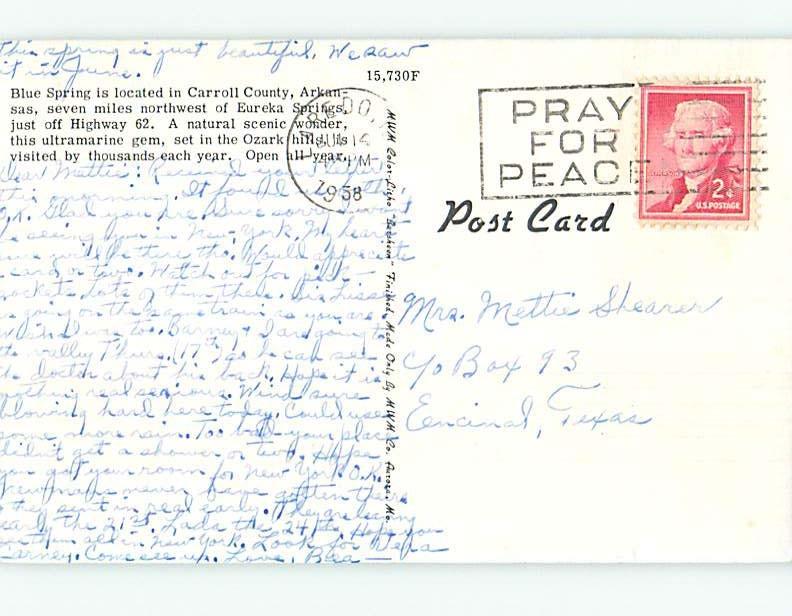 this spring is just beautiful. We saw
it in June.
15,730F
Blue Spring is located in Carroll County, Arkan-
sas, seven miles northwest of Eureka Springs,
just off Highway 62. A natural scenic wonder,
this ultramarine gem, set in the Ozark hills, is
visited by thousands each year. Open all year.
Dear Mettie: Received your
this morning. It found
O.K. Glad you are. Sure sorry I won't
be seeing you in New York. My heart
sure will be there tho. Would appreciate
a card or two. Watch out for pick-
pockets lots of them there.
going on the same train as you are.
too. Barney & I are going to
the valley Thurs. (17th) so he can see
the doctor about his back. Hope it is
nothing real serious. Wind sure
blowing hard here today. Could use
some more rain. Too bad your place
didn't get a shower or two. Hope
you got your room for New York O.K.
never have gotten there
they sent in real early. They are leaving
early the 21st. Lada the 24th. Hope you
see them all in New York. Look for Vera
Carney. Come see us. Love, Bea
JUL 14
PM
1958
PRAY
FOR
PEACE
2¢
U.S. POSTAGE
Post Card
MWM Color-Litho "Beechson" Finished, Made Only By MWM Co. Aurora, Mo.
Mrs. Mettie Shearer
c/o Box 93
Encinal, Texas